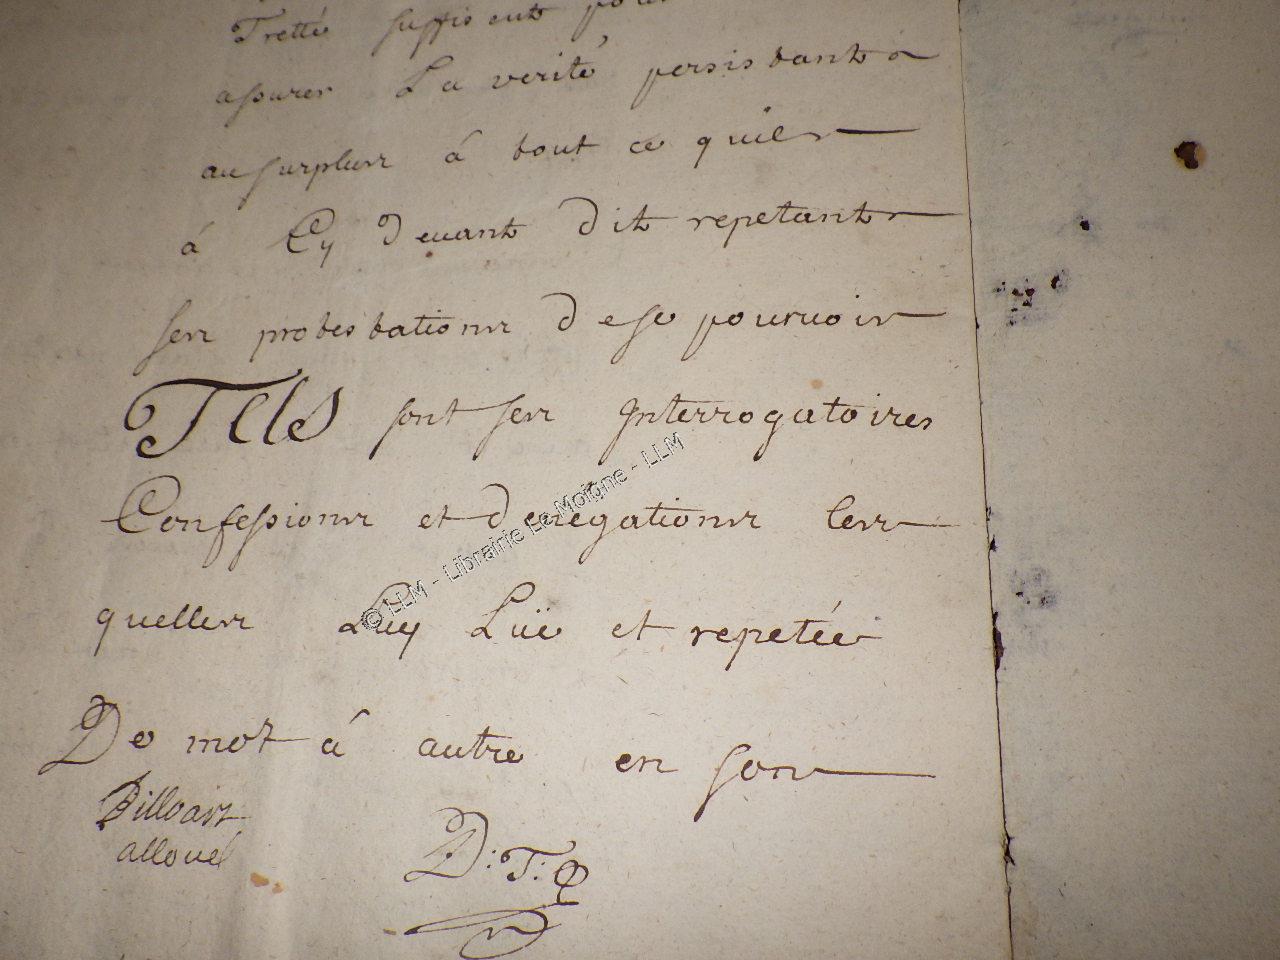 Tretté suffisent pour
assurer La verité persistant
au surplus á tout ce quil
á Cy devant dit repetant
ses protestations de se pourvoir
Tels sont ses Interrogatoires
Confessions et denegations les
quelles Luy Lüe et repetée
De mot á autre en son
Billoart
alloué
D: T:
© LLM - Librairie Le Moigne - LLM